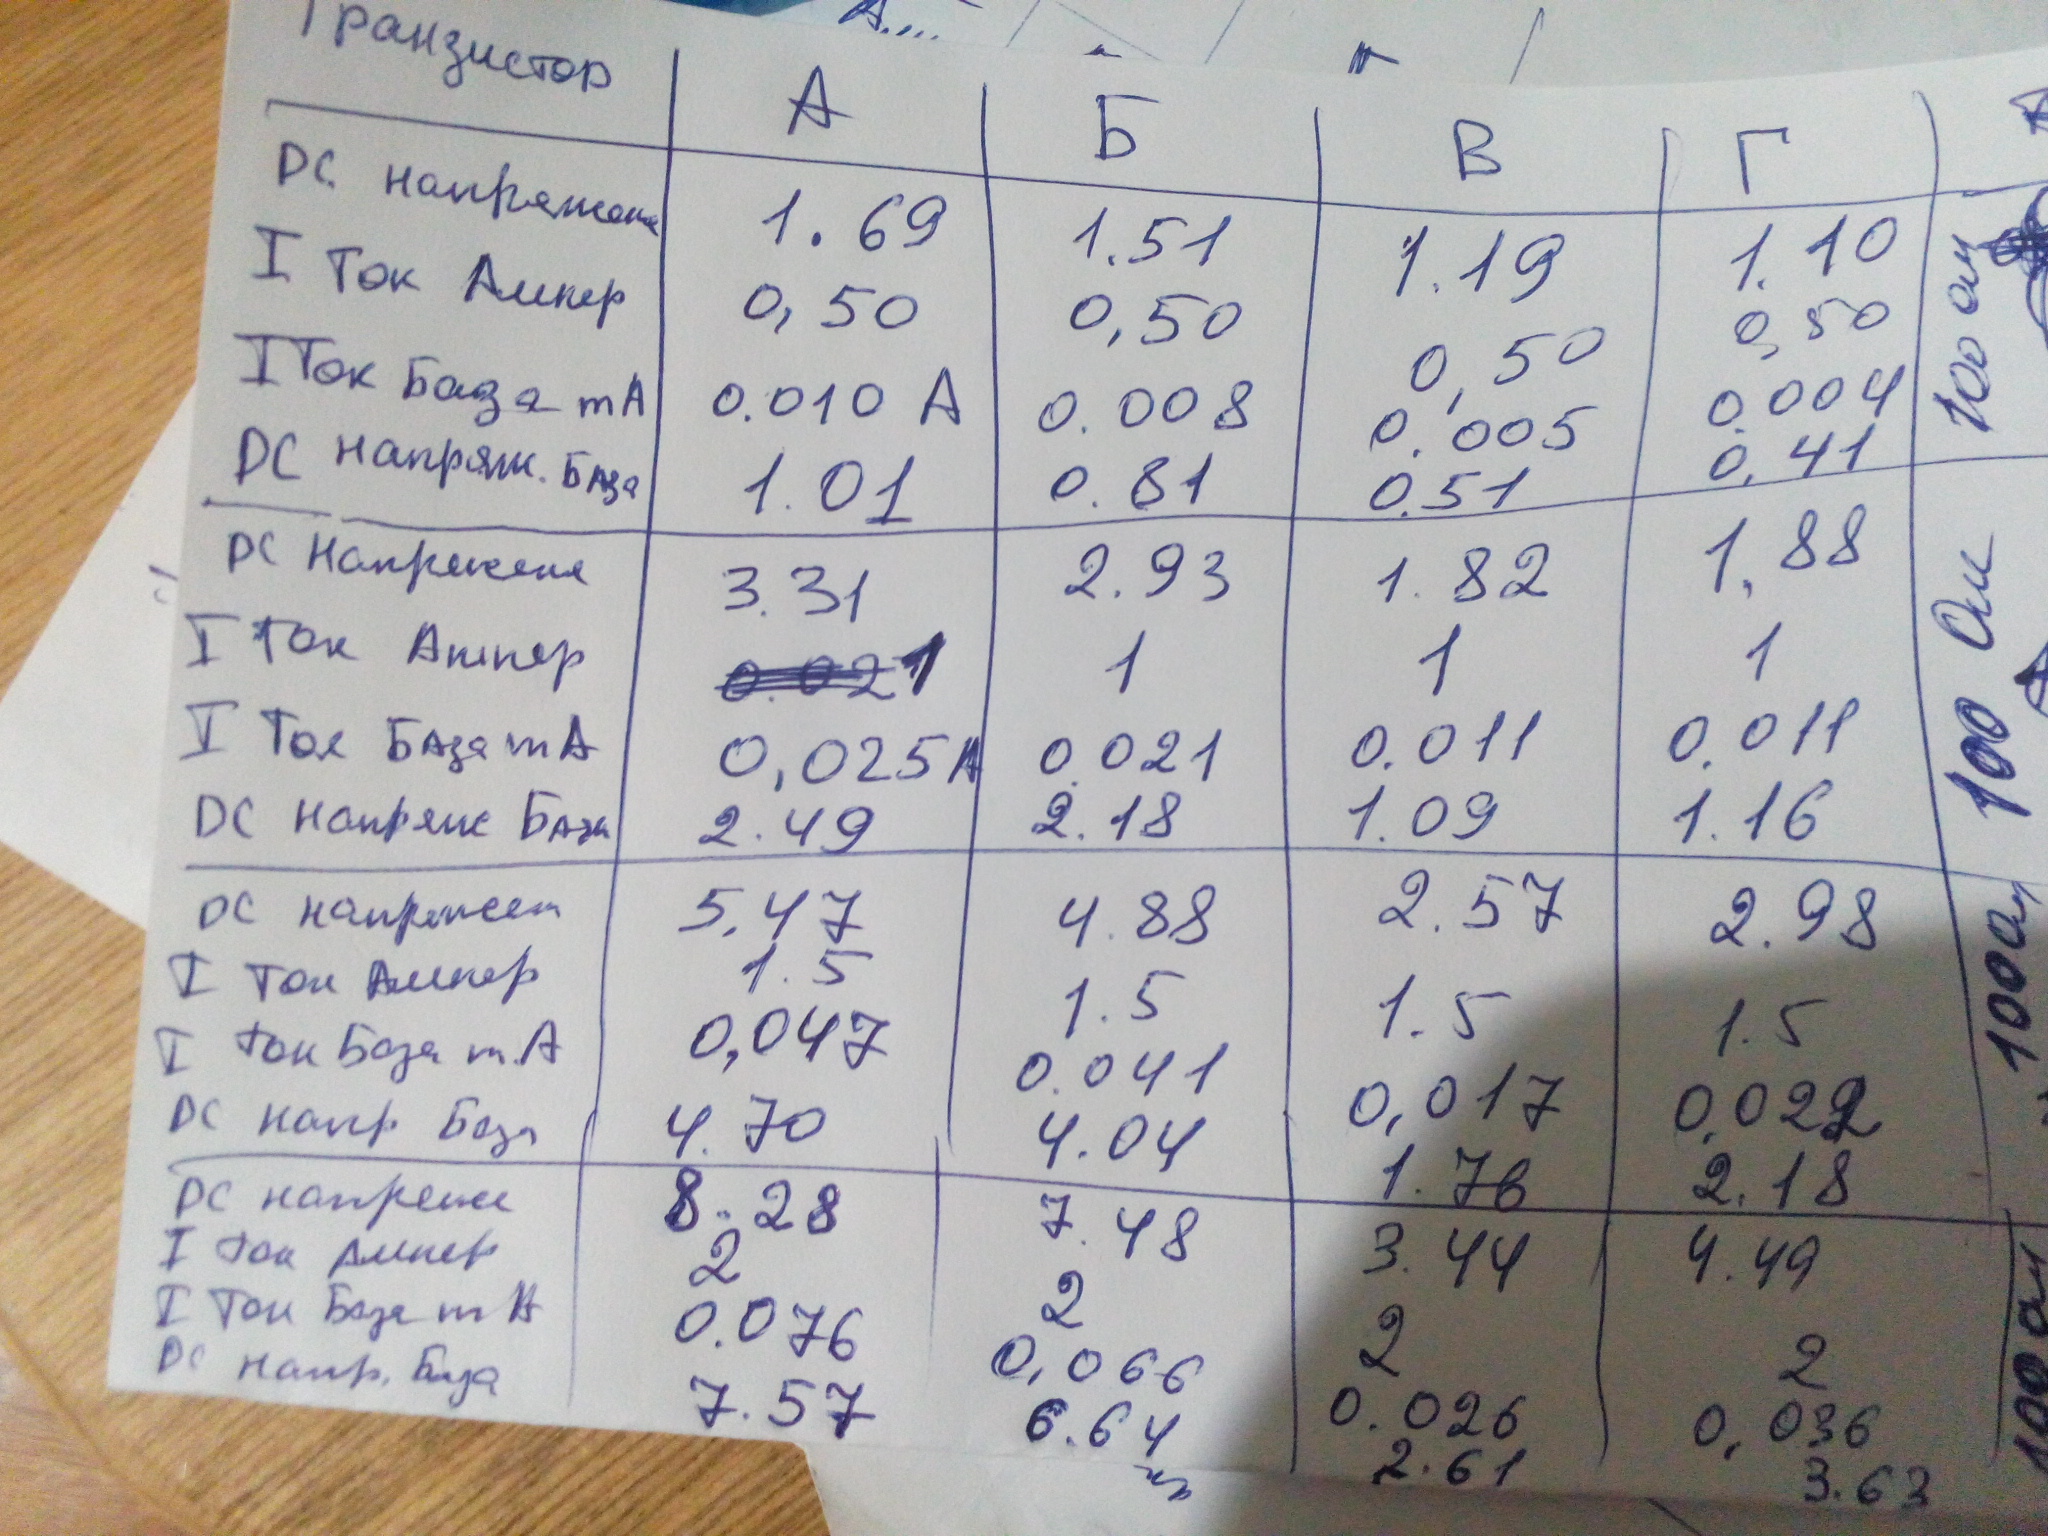 А....
Транзистор А Б В Г
DC напряжение 1.69 1.51 1.19 1.10 100 ом
I Ток Ампер 0,50 0,50 0,50 0,50
I Ток База mA 0.010 А 0.008 0.005 0.004
DC напряж. База 1.01 0.81 0.51 0,41
DC напрежение 3.31 2.93 1.82 1.88 100 Ом
I Ток Ампер 1 1 1 1
I Ток База mA 0,025А 0.021 0.011 0.011
DC напряж База 2.49 2.18 1.09 1.16
DC напряжен 5.47 4.88 2.57 2.98 100 Ом
I Ток Ампер 1.5 1.5 1.5 1.5
I Ток База mA 0,047 0.041 0,017 0,022
DC напр База 4.70 4.04 1.76 2.18
DC напреже 8.28 7.48 3.44 4.49 100 ом
I Ток Ампер 2 2 2 2
I Ток База mA 0.076 0,066 0.026 0,036
DC напр. База 7.57 6.64 2.61 3.63